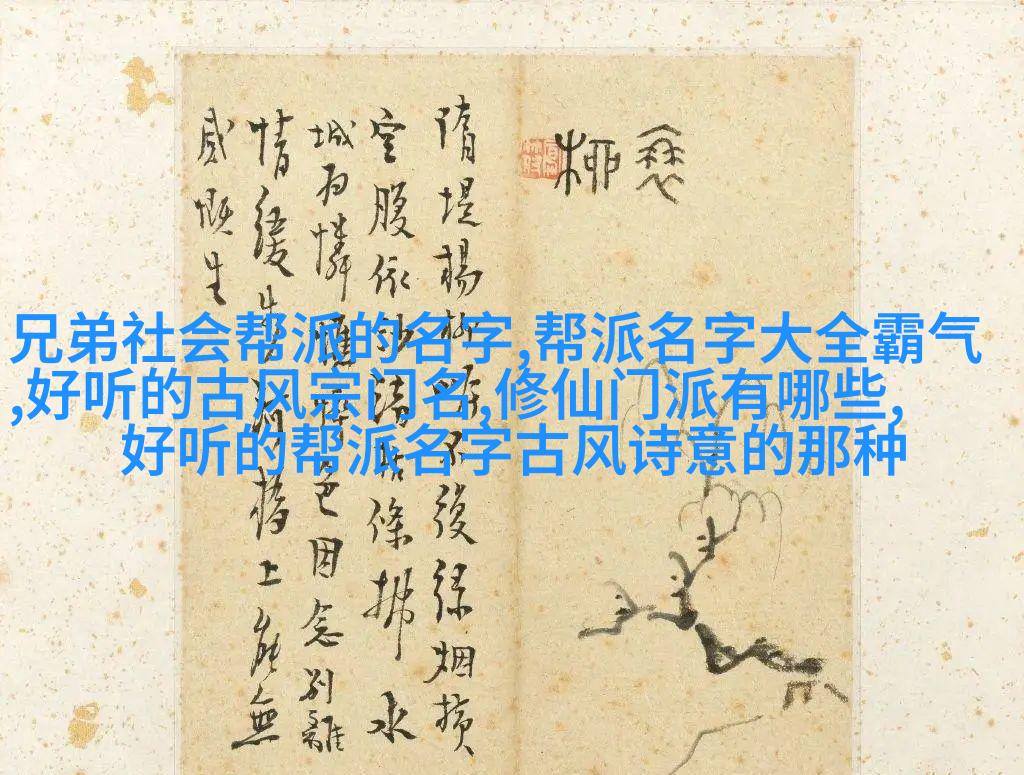 兄弟社会帮派的名字,帮派名字大全霸气
,好听的古风宗门名,修仙门派有哪些,
好听的帮派名字古风诗意的那种
柳
隋堤楊柳 不復綠烟橫
空腹依 枯條拂水
城 憐憔悴色因念別離
情緩步 上能無
感慨生